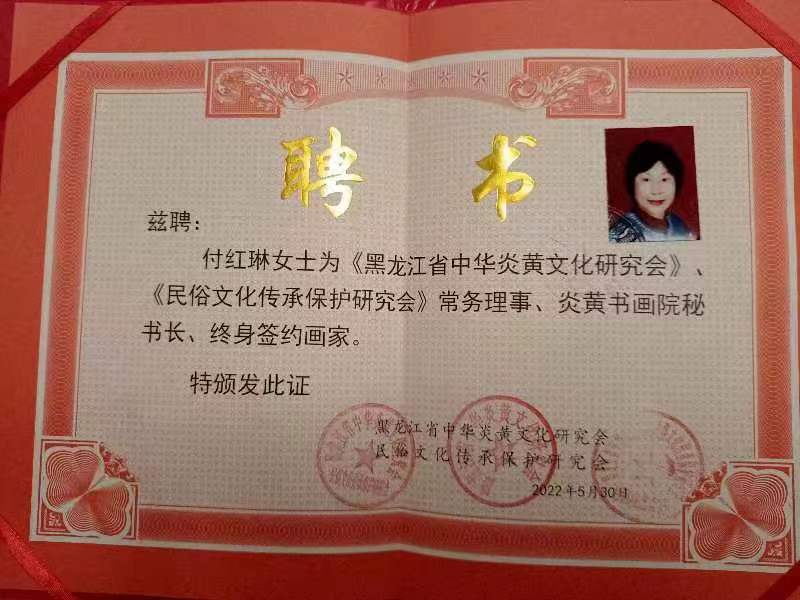 聘书
兹聘：
付红琳女士为《黑龙江省中华炎黄文化研究会》、
《民俗文化传承保护研究会》常务理事、炎黄书画院秘
书长、终身签约画家。
特颁发此证
黑龙江省中华炎黄文化研究会
民俗文化传承保护研究会
2022年5月30日